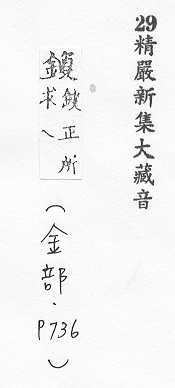 29精嚴新集大藏音
正所
求乀
（金部．P736）